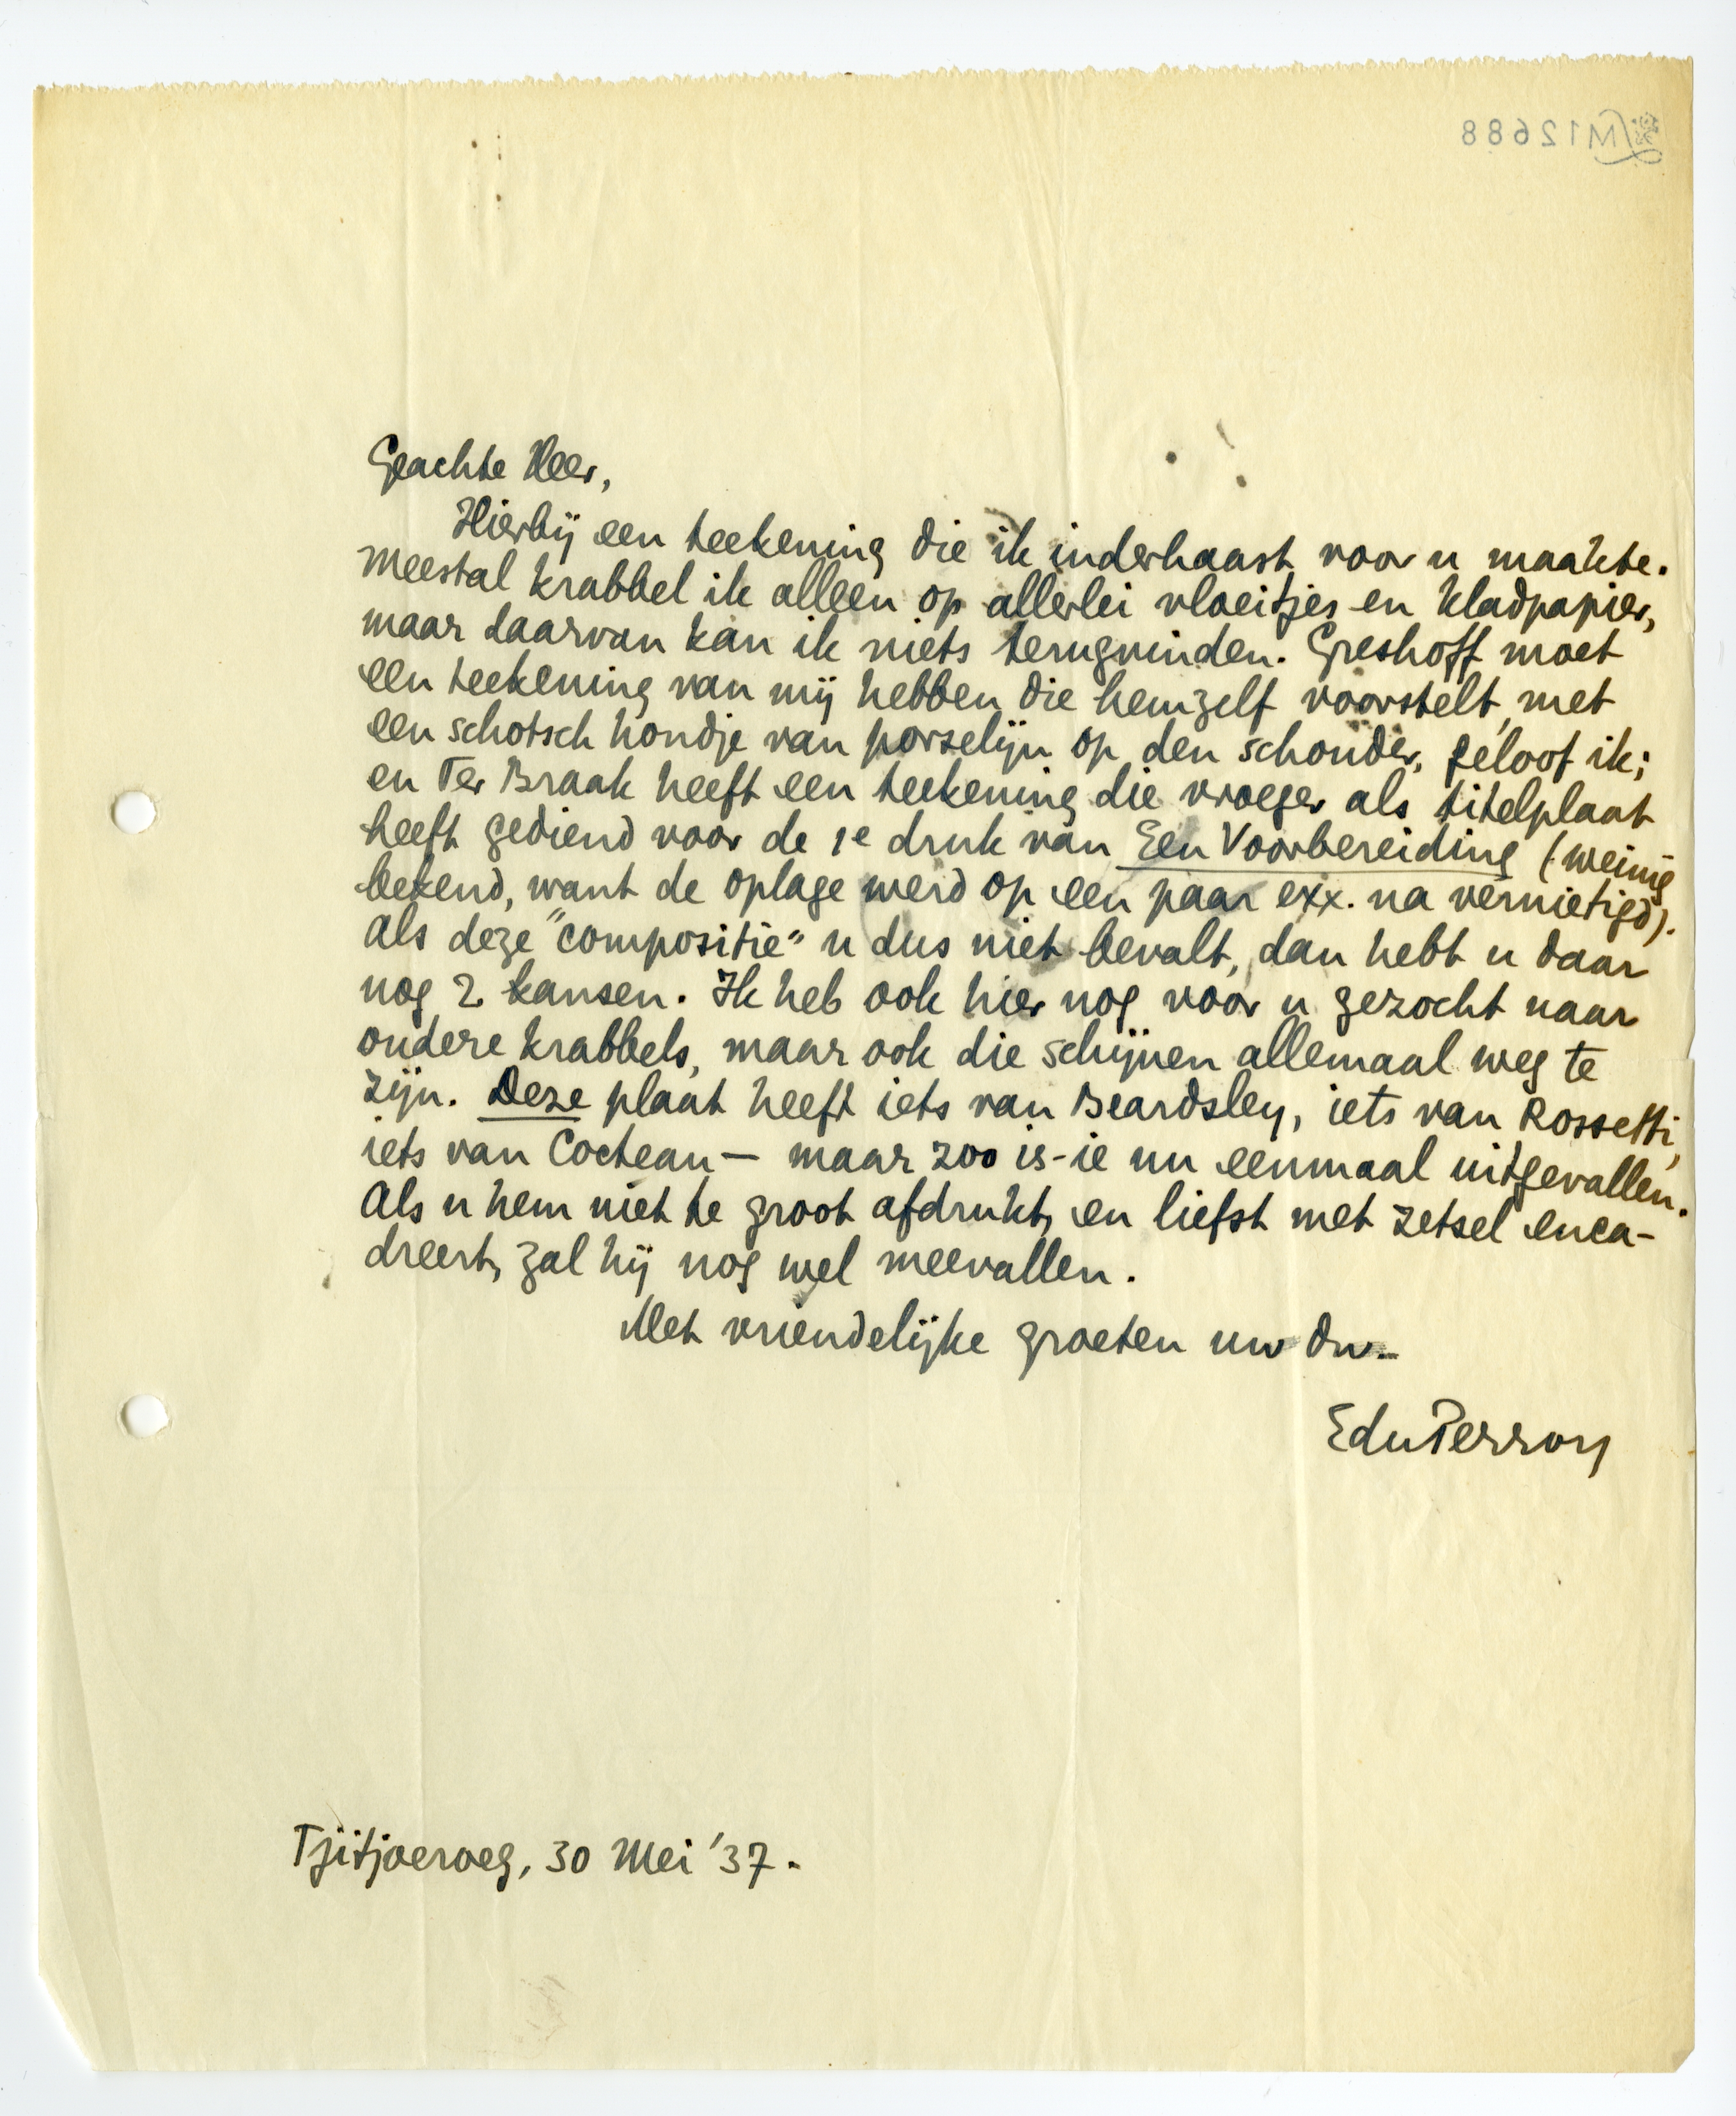 M12688
Geachte Heer,
Hierbij een teekening die ik inderhaast voor u maakte.
Meestal krabbel ik alleen op allerlei vloeitjes en kladpapier,
maar daarvan kan ik niets terugvinden. Greshoff moet
een teekening van mij hebben die hemzelf voorstelt, met
een schotsch hondje van porselijn op den schouder, geloof ik;
en Ter Braak heeft een teekening die vroeger als titelplaat
heeft gediend voor de 1e druk van Een Voorbereiding (weinig
bekend, want de oplage werd op een paar exx. na vernietigd).
Als deze "compositie" u dus niet bevalt, dan hebt u daar
nog 2 kansen. Ik heb ook hier nog voor u gezocht naar
oudere krabbels, maar ook die schijnen allemaal weg te
zijn. Deze plaat heeft iets van Beardsley, iets van Rossetti,
iets van Cocteau — maar zoo is-ie nu eenmaal uitgevallen.
Als u hem niet te groot afdrukt, en liefst met zetsel enca-
dreert, zal hij nog wel meevallen.
Met vriendelijke groeten uw dw.
EduPerron
Tjitjoeroeg, 30 Mei '37.